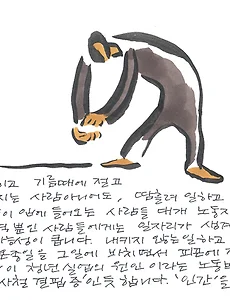 이고 기름때에 절고
지는 사람아니어도, 땀흘려 일하고
이 앞에 들어오는 사람들 대개 노동자
뿐인 사람들에게는 일자리가 생겨
능성이 큽니다. 내키지 않는일하고
온종일을 그일에 바치면서 피곤에
이 청년실업의 원인 이라는 노동
사정 결핍 중'인듯 합니다. '인간'을